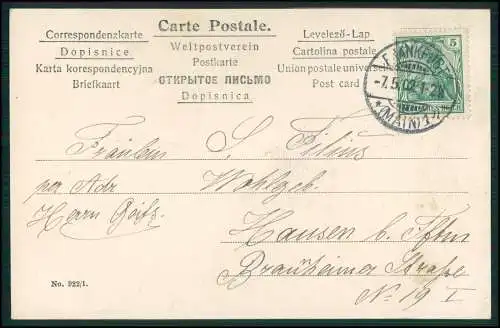 Carte Postale.
Correspondenzkarte
Dopisnice
Karta korespondencyjna
Briefkaart
Weltpostverein
Postkarte
ОТКРЫТОЕ ПИСЬМО
Dopisnica
Levelező-Lap
Cartolina postale
Unionpostaleuniverselle
Post card
5
FRANKFURT
-7.5.02.1-2N
*(MAIN)1*
Fräulein S. Filius
per Adr Wohlgeb.
Herrn Goetz
Hausen b. Ffm
Brauheimer Straße
No 19 I
No. 922/1.